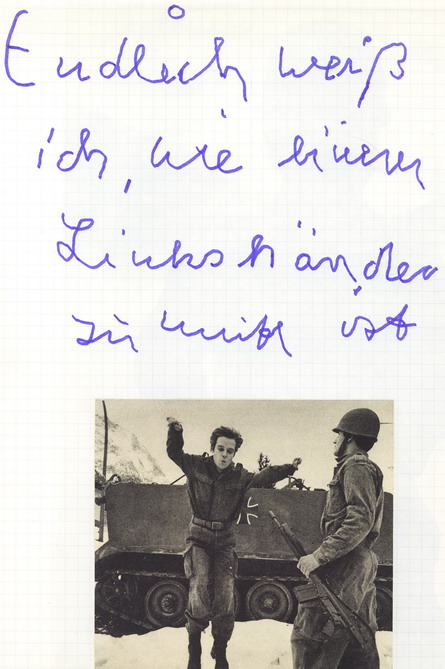 Endlich weiß
ich, wie einem
Linkshänder
zu mute ist